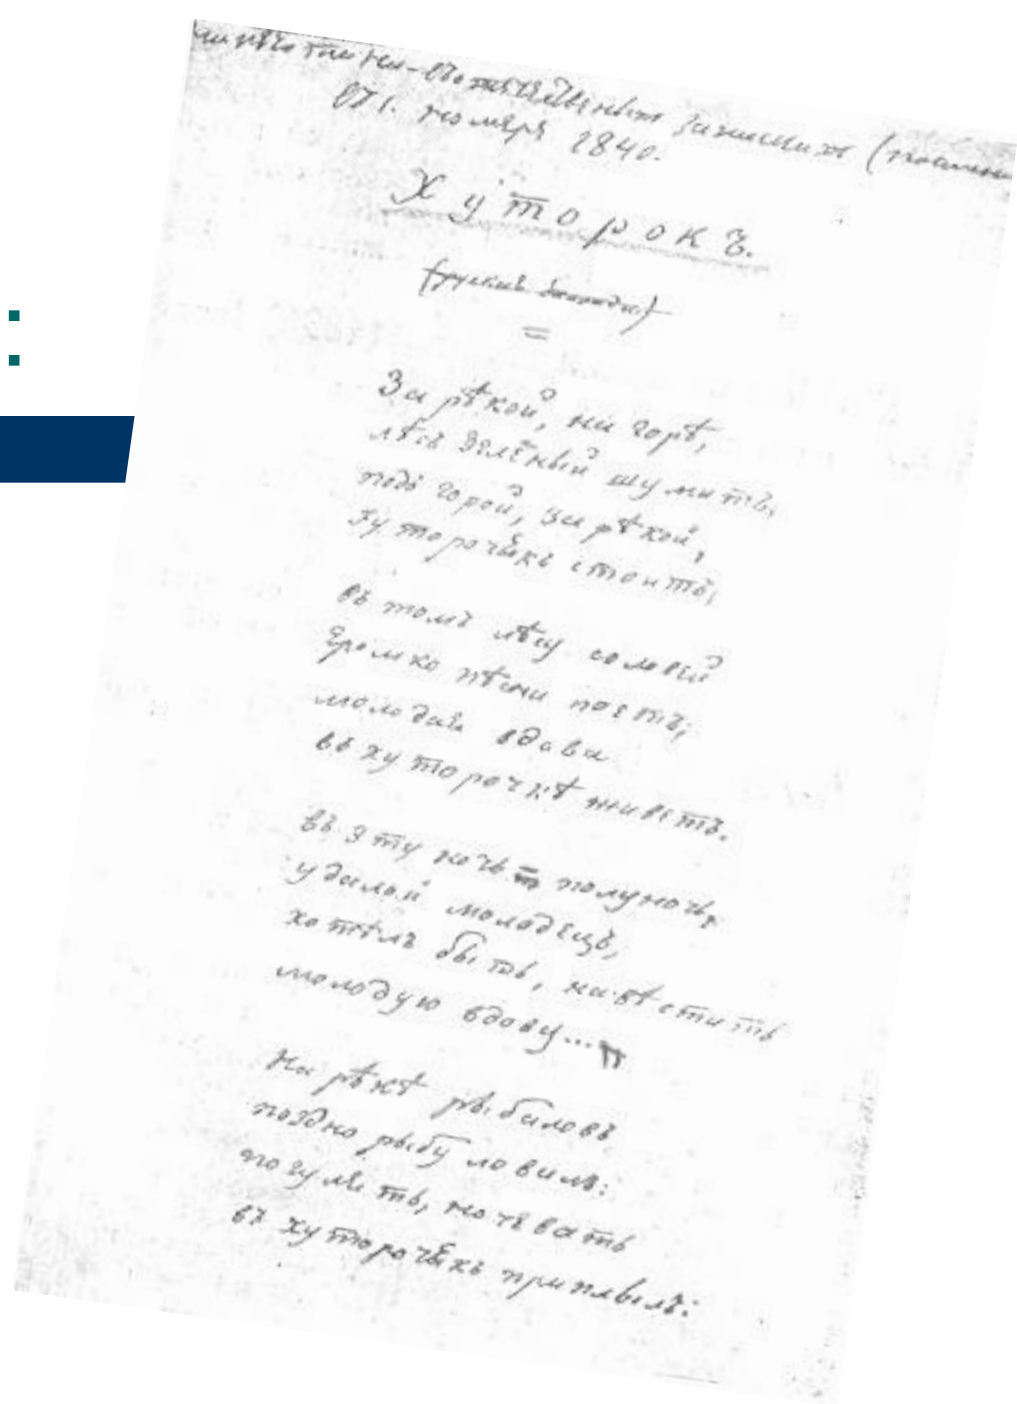 въ отечественныхъ запискахъ
1840.
Хуторокъ.
(русская баллада)
За рѣкой, на горѣ,
лѣсъ зелёный шумитъ,
подъ горой, за рѣкой,
хуторочикъ стоитъ;
въ томъ лѣсу соловей
громко пѣсни поетъ;
молодая вдова
въ хуторочкѣ живетъ.
въ эту ночь полуночь,
удалой молодецъ,
хотѣлъ быть, навѣстить
молодую вдову...
На рѣкѣ рыбаловъ
поздно рыбу ловилъ:
погулять, ночевать
въ хуторочикъ приплылъ: